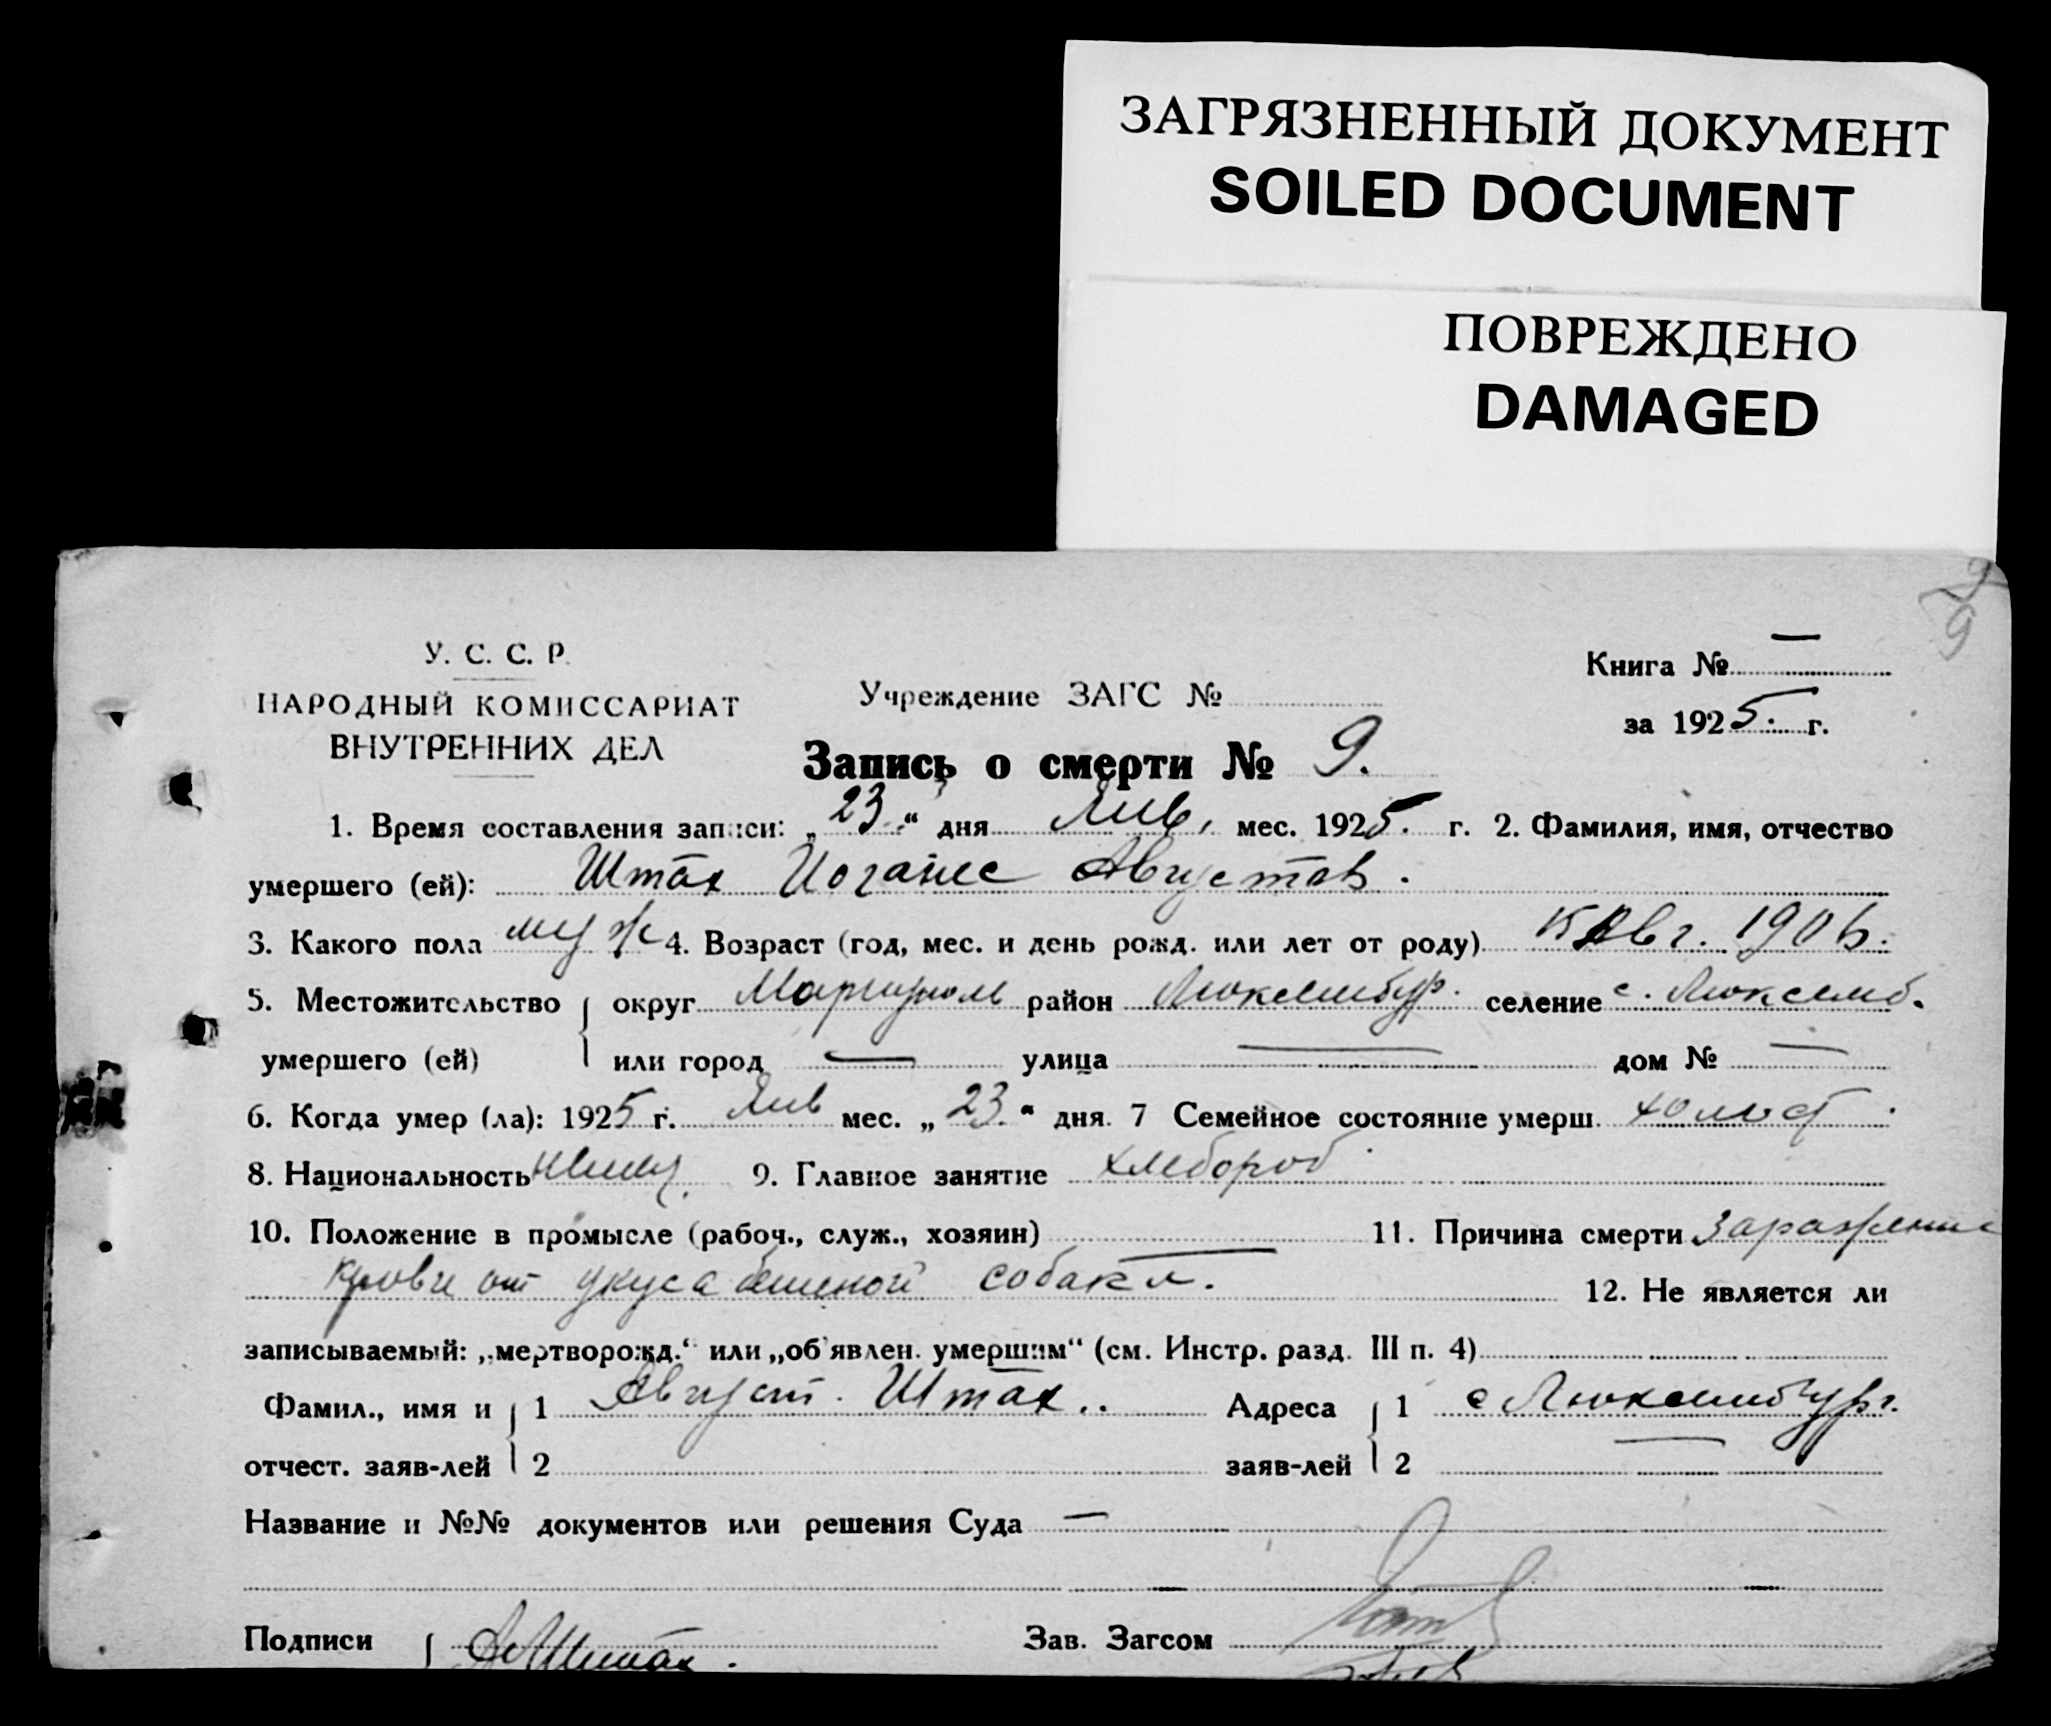 ЗАГРЯЗНЕННЫЙ ДОКУМЕНТ
SOILED DOCUMENT
ПОВРЕЖДЕНО
DAMAGED
9
У. С. С. Р.
НАРОДНЫЙ КОМИССАРИАТ
ВНУТРЕННИХ ДЕЛ
Учреждение ЗАГС №
Книга № —
за 1925 г.
Запись о смерти № 9.
1. Время составления записи: „23“ дня Янв. мес. 1925. г. 2. Фамилия, имя, отчество
умершего (ей): Штах Иоганес Августов.
3. Какого пола муж 4. Возраст (год, мес. и день рожд. или лет от роду) Авг. 1906.
5. Местожительство округ Мариуполь район Люксембур. селение с. Люксемб.
умершего (ей) или город — улица — дом № —
6. Когда умер (ла): 1925 г. Янв мес. „23“ дня. 7 Семейное состояние умерш. холост.
8. Национальность немец. 9. Главное занятие хлебороб
10. Положение в промысле (рабоч., служ., хозяин) — 11. Причина смерти Заражение
крови от укуса бешеной собаки. 12. Не является ли
записываемый: „мертворожд.“ или „об'явлен. умершим“ (см. Инстр. разд. III п. 4)
Фамил., имя и 1 Август. Штах.. Адреса 1 с Люксембург.
отчест. заяв-лей 2 заяв-лей 2 —
Название и №№ документов или решения Суда —
Подписи А Штах. Зав. Загсом